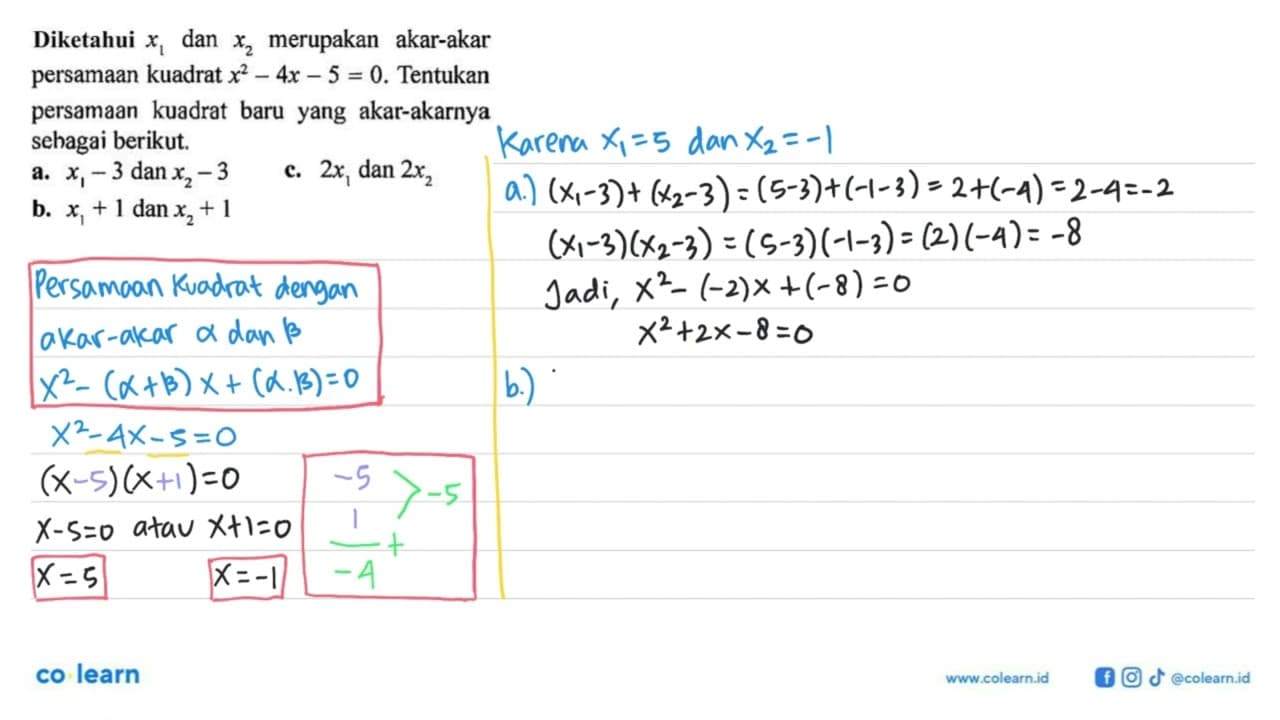 Diketahui x₁ dan x₂ merupakan akar-akar
persamaan kuadrat x² – 4x – 5 = 0. Tentukan
persamaan kuadrat baru yang akar-akarnya
sebagai berikut.
a. x₁ – 3 dan x₂ – 3 c. 2x₁ dan 2x₂
b. x₁ + 1 dan x₂ + 1
Persamaan Kuadrat dengan
akar-akar α dan β
x² - (α+β) x + (α.β)=0
x²-4x-5=0
(x-5)(x+1)=0
x-5=0 atau x+1=0
x=5 x=-1
-5
1 > -5
+
-4
Karena x₁=5 dan x₂=-1
a.) (x₁-3)+(x₂-3)=(5-3)+(-1-3)=2+(-4)=2-4=-2
(x₁-3)(x₂-3)=(5-3)(-1-3)=(2)(-4)=-8
Jadi, x²-(-2)x+(-8)=0
x²+2x-8=0
b.)
co learn
www.colearn.id @colearn.id